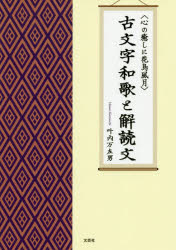 〈心の癒しに花鳥風月〉
古文字和歌と解読文
叶内
文芸社